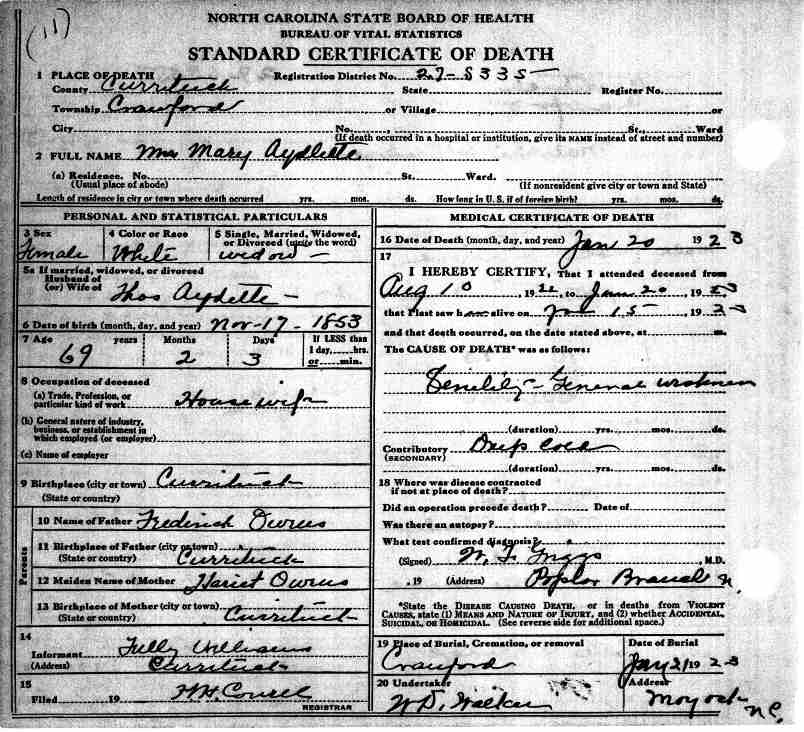 (11)
NORTH CAROLINA STATE BOARD OF HEALTH
BUREAU OF VITAL STATISTICS
STANDARD CERTIFICATE OF DEATH
1 PLACE OF DEATH
Registration District No. 27-5335
County Currituck State Register No.
Township Crawford or Village or
City No. St., Ward
(If death occurred in a hospital or institution, give its NAME instead of street and number)
2 FULL NAME Mrs Mary Aydlette
(a) Residence. No. St. Ward.
(Usual place of abode) (If nonresident give city or town and State)
Length of residence in city or town where death occurred yrs. mos. ds. How long in U. S. if of foreign birth? yrs. mos. ds.
PERSONAL AND STATISTICAL PARTICULARS
3 Sex 4 Color or Race 5 Single, Married, Widowed, or Divorced (write the word)
Female White widow
5a If married, widowed, or divorced
Husband of
(or) Wife of Thos Aydlette
6 Date of birth (month, day, and year) Nov-17-1853
7 Age years Months Days If LESS than
1 day,......hrs.
or......min.
69 2 3
8 Occupation of deceased
(a) Trade, Profession, or
particular kind of work House wife
(b) General nature of industry,
business, or establishment in
which employed (or employer)
(c) Name of employer
9 Birthplace (city or town) Currituck
(State or country)
Parents
10 Name of Father Frederick Owens
11 Birthplace of Father (city or town)
(State or country) Currituck
12 Maiden Name of Mother Hariet Owens
13 Birthplace of Mother (city or town)
(State or country) Currituck
14
Informant Tully Williams
(Address) Currituck
15
Filed 19
REGISTRAR
MEDICAL CERTIFICATE OF DEATH
16 Date of Death (month, day, and year) Jan 20 1923
17
I HEREBY CERTIFY, That I attended deceased from
Aug 10 1922 to Jan 20 1923
that I last saw h alive on Jan 15 1923
and that death occurred, on the date stated above, at m.
The CAUSE OF DEATH* was as follows:
Senility - General weakness
(duration) yrs. mos. ds.
Contributory Deep cold
(SECONDARY)
(duration) yrs. mos. ds.
18 Where was disease contracted
if not at place of death?
Did an operation precede death? Date of
Was there an autopsy?
What test confirmed diagnosis?
(Signed) W. T. Griggs M.D.
, 19 (Address) Poplar Branch N.
*State the DISEASE CAUSING DEATH, or in deaths from VIOLENT
CAUSES, state (1) MEANS AND NATURE OF INJURY, and (2) whether ACCIDENTAL,
SUICIDAL, or HOMICIDAL. (See reverse side for additional space.)
19 Place of Burial, Cremation, or removal Date of Burial
Crawford Jany 21 1923
20 Undertaker Address
W D. Walker Moyock
N.C.